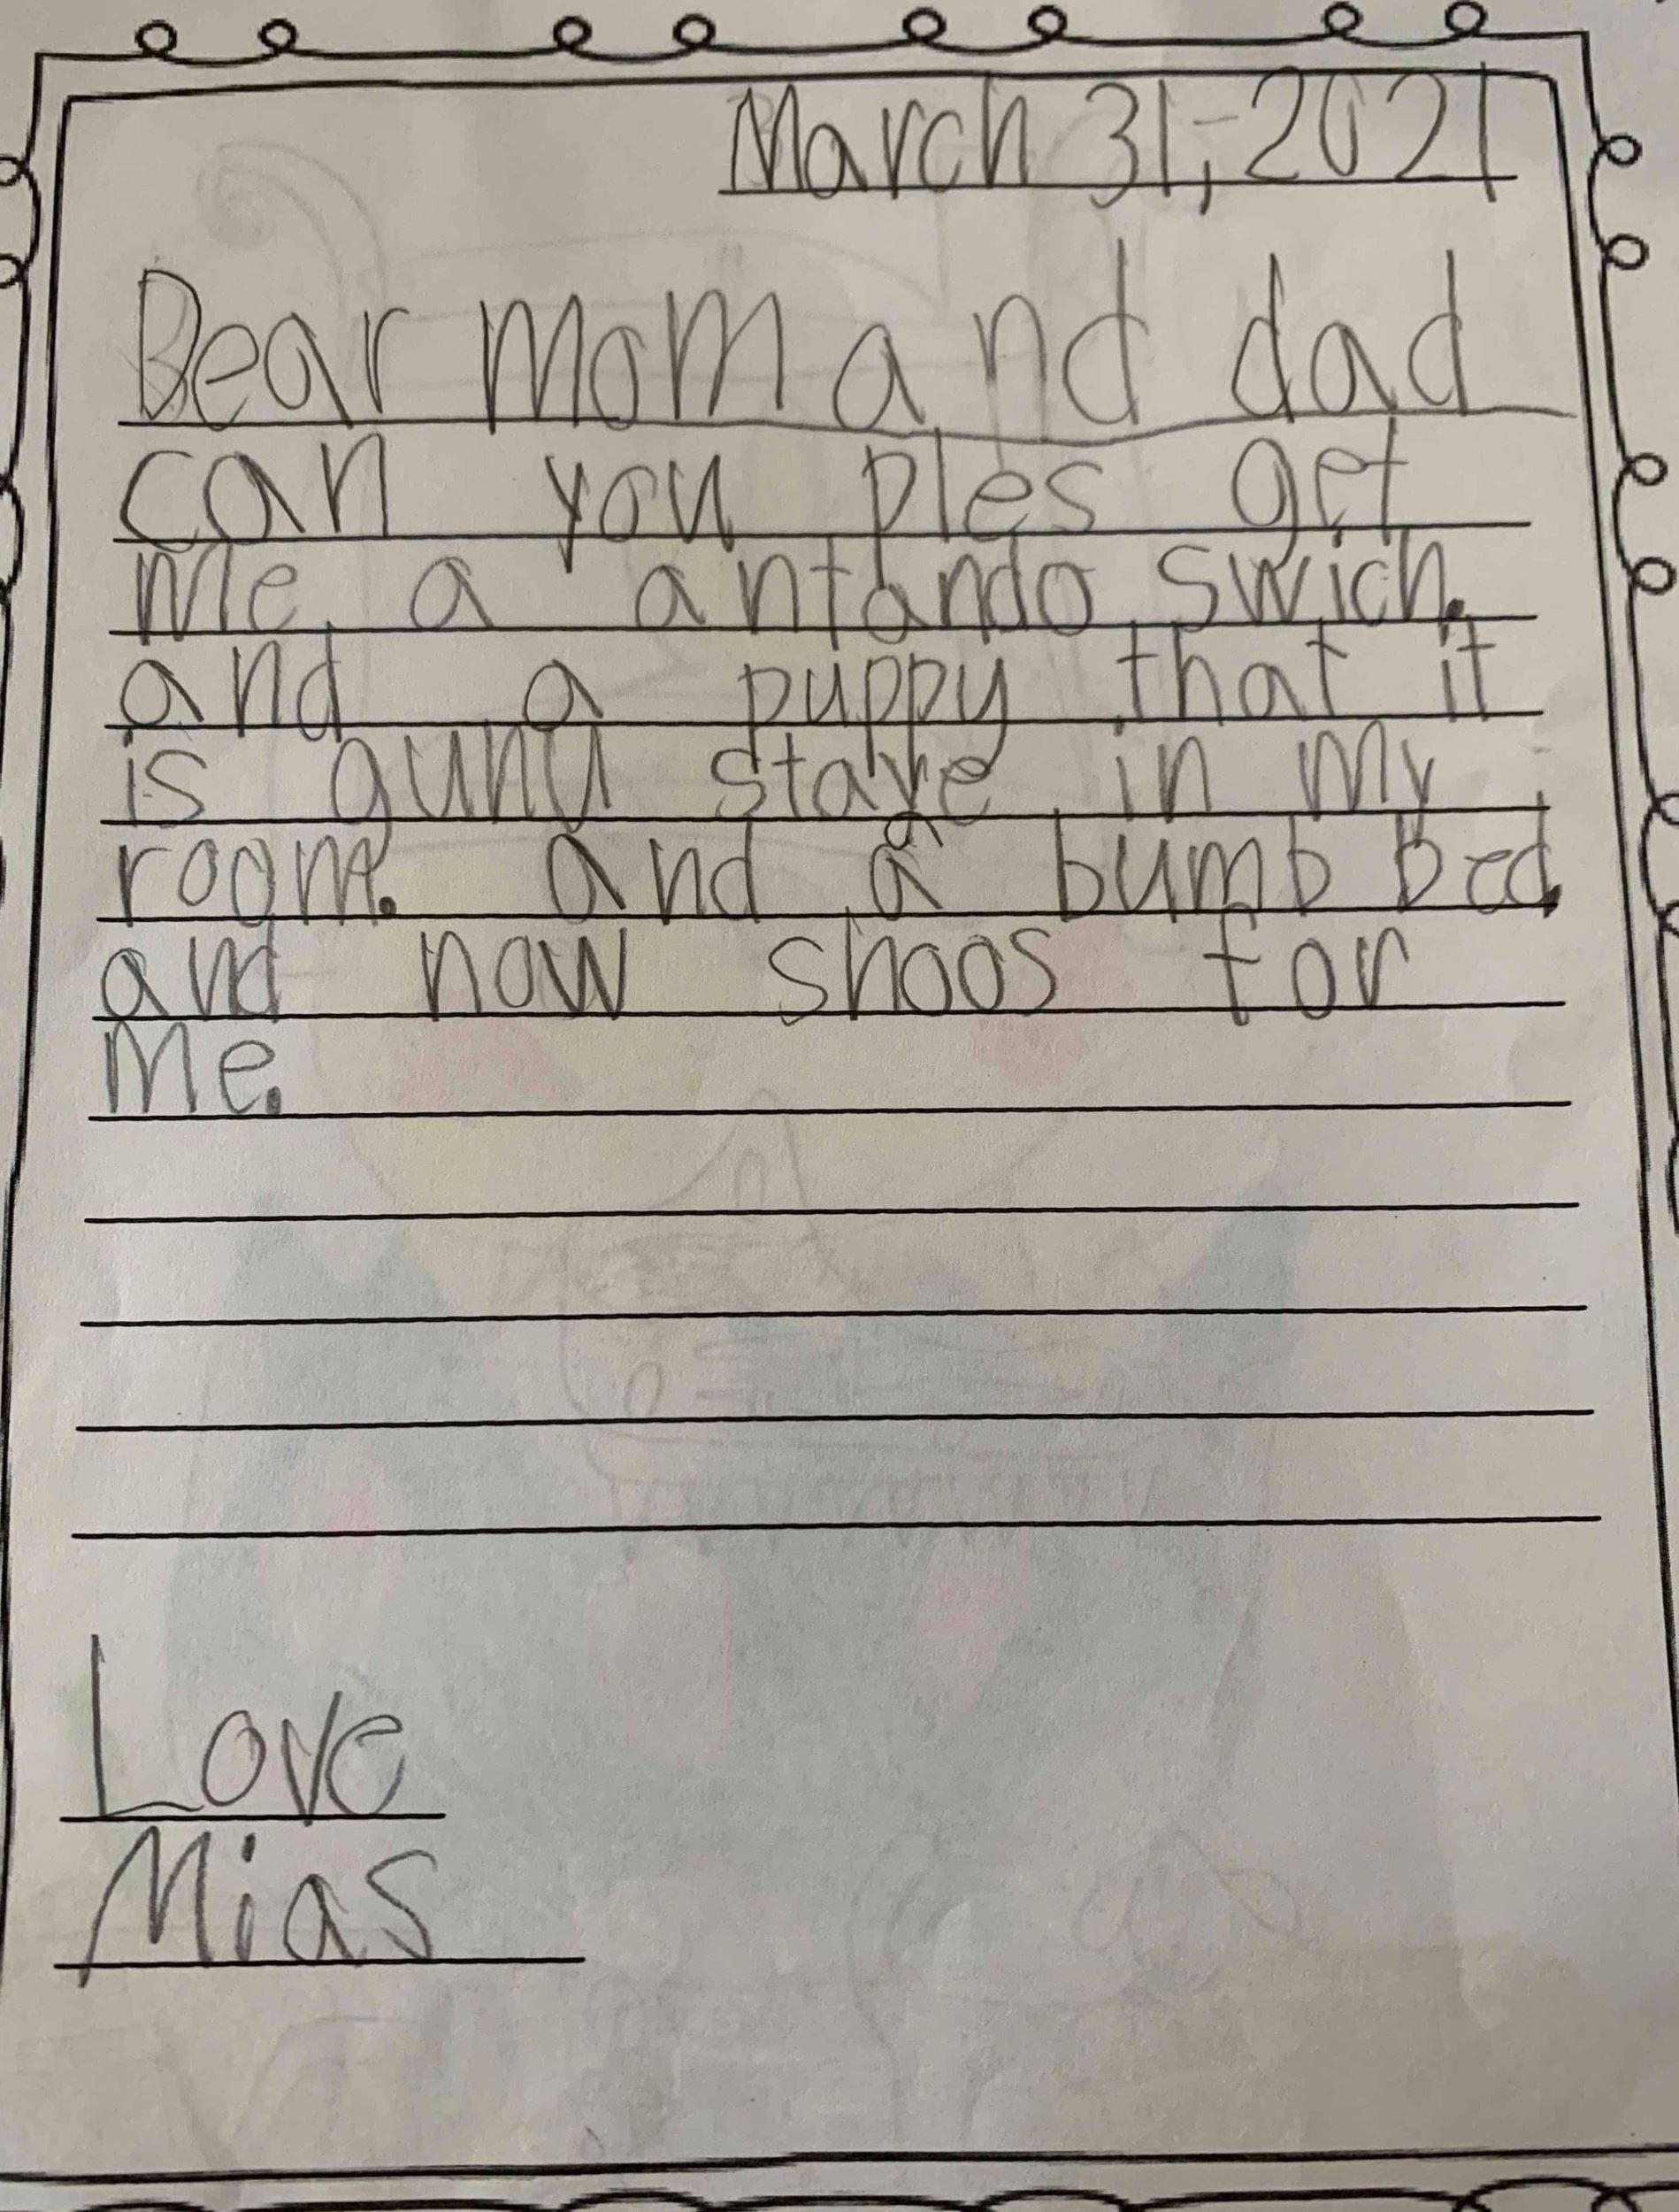 March 31, 2021
Dear mom and dad
can you ples get
me a antando swich.
and a puppy that it
is gunu staye in my
room. and a bumb bed.
and now shoos for
me.
Love
Mias